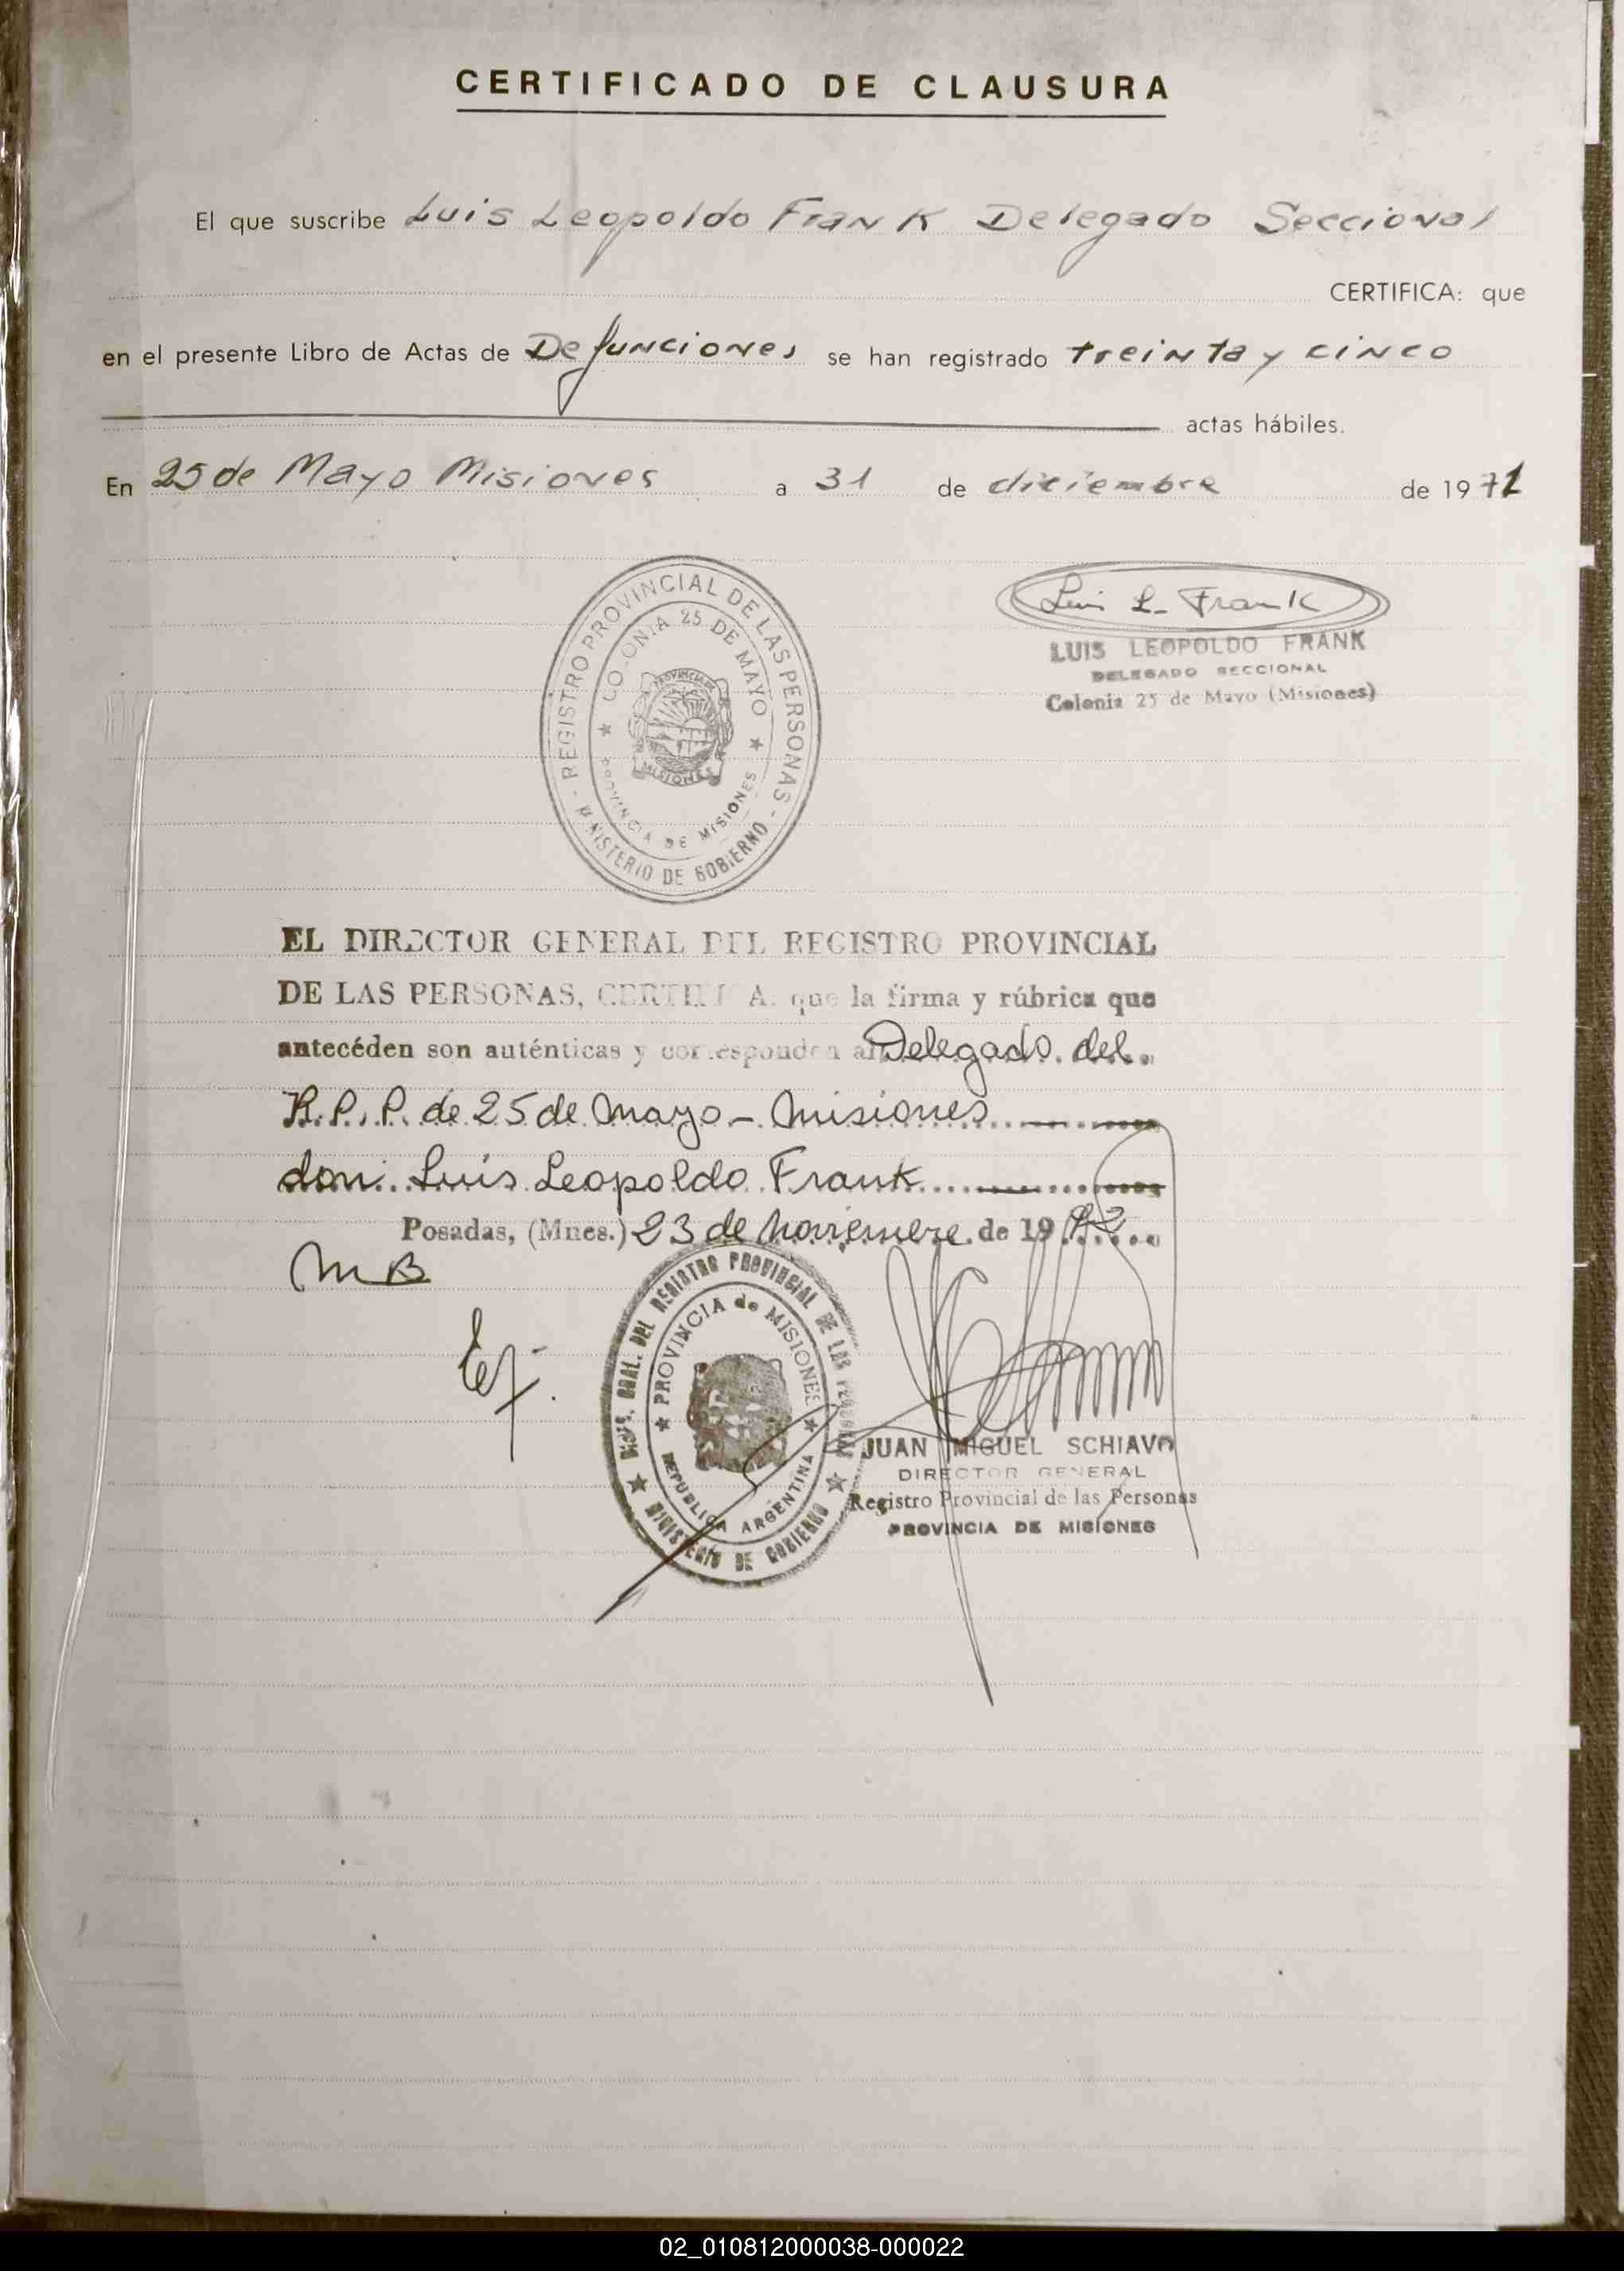 CERTIFICADO DE CLAUSURA
El que suscribe Luis Leopoldo Frank Delegado Seccional
CERTIFICA: que
en el presente Libro de Actas de Defunciones se han registrado treinta y cinco
actas hábiles.
En 25 de Mayo Misiones a 31 de diciembre de 1971
REGISTRO PROVINCIAL DE LAS PERSONAS - MINISTERIO DE GOBIERNO -
★ COLONIA 25 DE MAYO ★ PROVINCIA DE MISIONES
PROVINCIA DE
MISIONES
Luis L. Frank
LUIS LEOPOLDO FRANK
DELEGADO SECCIONAL
Colonia 25 de Mayo (Misiones)
EL DIRECTOR GENERAL DEL REGISTRO PROVINCIAL
DE LAS PERSONAS, CERTIFICA: que la firma y rúbrica que
antecéden son auténticas y corresponden al Delegado del
R.P.P. de 25 de Mayo - Misiones
don Luis Leopoldo Frank
Posadas, (Mnes.) 23 de noviembre de 19
MB
★ DIR. GRAL. DEL REGISTRO PROVINCIAL DE LAS PERSONAS ★ MINISTERIO DE GOBIERNO
★ PROVINCIA de MISIONES ★ REPUBLICA ARGENTINA
JUAN MIGUEL SCHIAVO
DIRECTOR GENERAL
Registro Provincial de las Personas
PROVINCIA DE MISIONES
02_010812000038-000022